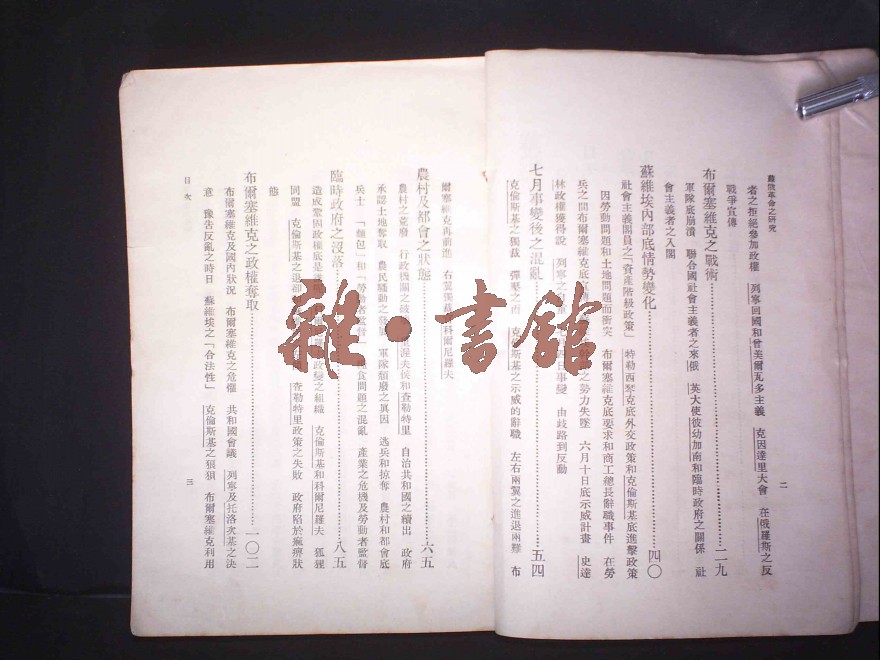 農俄革命之研究
二
者之拒絕參加政權 列寧回國和曾美爾瓦多主義 克因達里大會 在俄羅斯之反
戰爭宣傳
布爾塞維克之戰術…………二九
軍隊底崩潰 聯合國社會主義者之來俄 英大使彼幼加南和臨時政府之關係 社
會主義者之入閣
蘇維埃內部底情勢變化…………四〇
社會主義閣員之「資產階級政策」 特勒西琴克底外交政策和克倫斯基底進擊政策
因勞動問題和土地問題而衝突 布爾塞維克底要求和商工總長辭職事件 在勞
兵之間布爾塞維克底 之勢力失墜 六月十日底示威計畫 史達
林政權獲得說 列寧之 日事變 由歧路到反動
七月事變後之混亂…………五四
克倫斯基之獨裁 彈壓之 克倫斯基之示威的辭職 左右兩翼之進退兩難 布
爾塞維克再前進 右翼 科爾尼羅夫
農村及都會之狀態…………六五
農村之荒廢 行政機關之 渥夫侯和查勒特里 自治共和國之續出 政府
承認土地奪取 農民騷動之發 軍隊頹廢之眞因 逃兵和掠奪 農村和都會底
兵士 「麵包」和「勞動者監督」 食問題之混亂 產業之危機及勞動者監督
臨時政府之沒落…………八五
造成鞏固政權底是誰 政變之組織 克倫斯基和科爾尼羅夫 狐狸
同盟 克倫斯基之退卻 查勒特里政策之失敗 政府陷於癱瘓狀
態
布爾塞維克之政權奪取…………一〇二
布爾塞維克及國內狀況 布爾塞維克之危懼 共和國會議 列寧及托洛次基之決
意 豫告反亂之時日 蘇維埃之「合法性」 克倫斯基之狼狽 布爾塞維克利用
目次
三
雜·書館